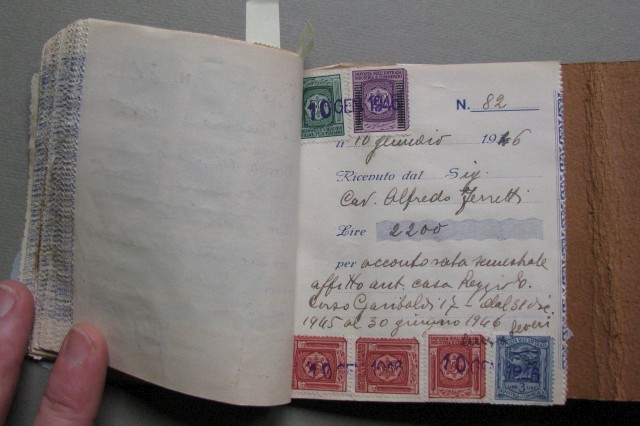 10 GEN 1946
N. 82
il 10 gennaio 1946
Ricevuto dal Sig.
Cav. Alfredo Ferretti
Lire 2200
per acconto rata semestrale
affitto ant. casa Reggio E.
Corso Garibaldi 17 - dal 31 dic.
1945 al 30 giugno 1946
10 1946 10 1946